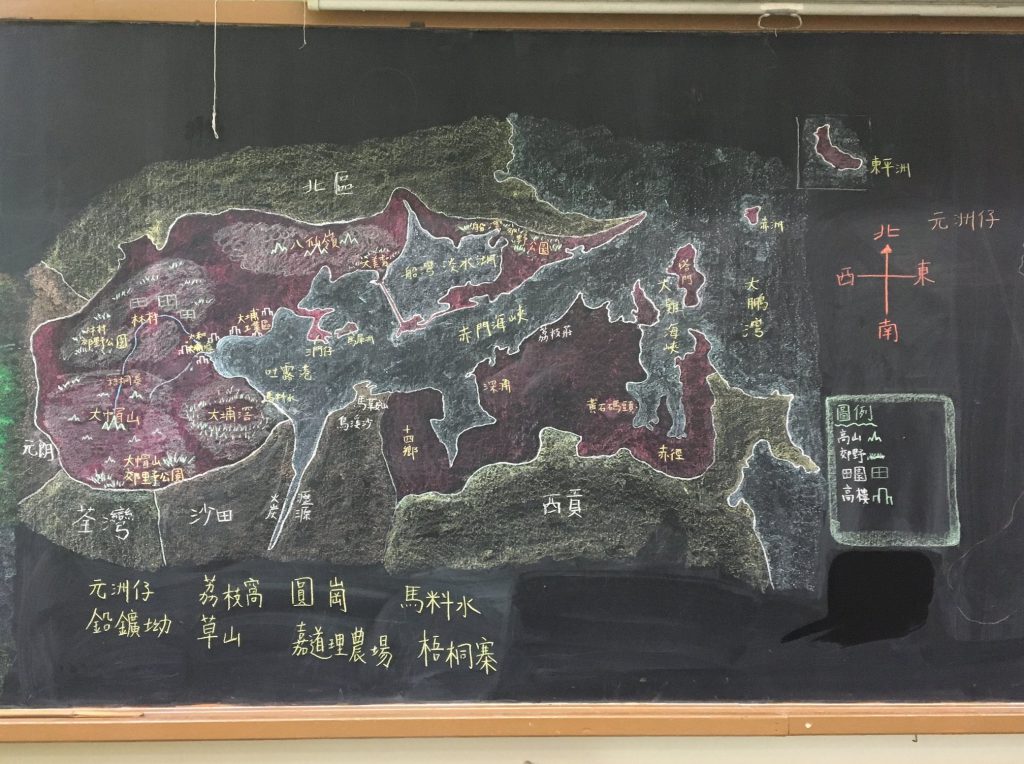 北區
東平洲
赤洲
元洲仔
八仙嶺
船灣
公園
塔門
北
西
東
南
船灣淡水湖
大鵬灣
林村
大埔工業區
林村郊野公園
赤門海峽
荔枝莊
三門仔
吐露港
梧桐寨
深涌
馬料水
大帽山
大埔滘
馬溪沙
黃石碼頭
十四鄉
元朗
赤徑
大帽山郊野公園
圖例
高山
郊野
田園
高樓
荃灣
沙田
火炭
西貢
元洲仔
荔枝窩
圓崗
馬料水
鉛鑛坳
草山
嘉道理農場
梧桐寨